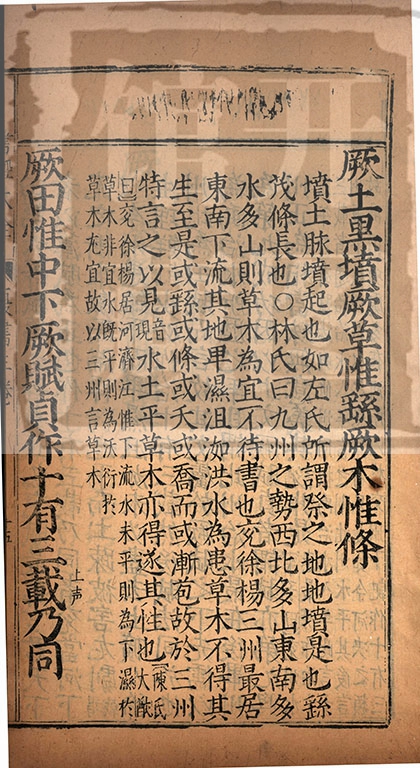 厥土黒墳厥草惟繇厥木惟條
墳土脉墳起也如左氏所謂祭之地地墳是也繇
茂條長也○林氏曰九州之勢西北多山東南多
水多山則草木為宜不待書也兖徐楊三州最居
東南下流其地卑濕沮洳洪水為患草木不得其
生至是或繇或條或夭或喬而或漸苞故於三州
特言之以見音現水土平草木亦得遂其性也陳氏大猷
曰兖徐楊居河濟江惟下流水未平則為下濕於
草木非宜水既平則為沃衍於
草木尤宜故以三州言草木
厥田惟中下厥賦貞作十有三載乃同
上声